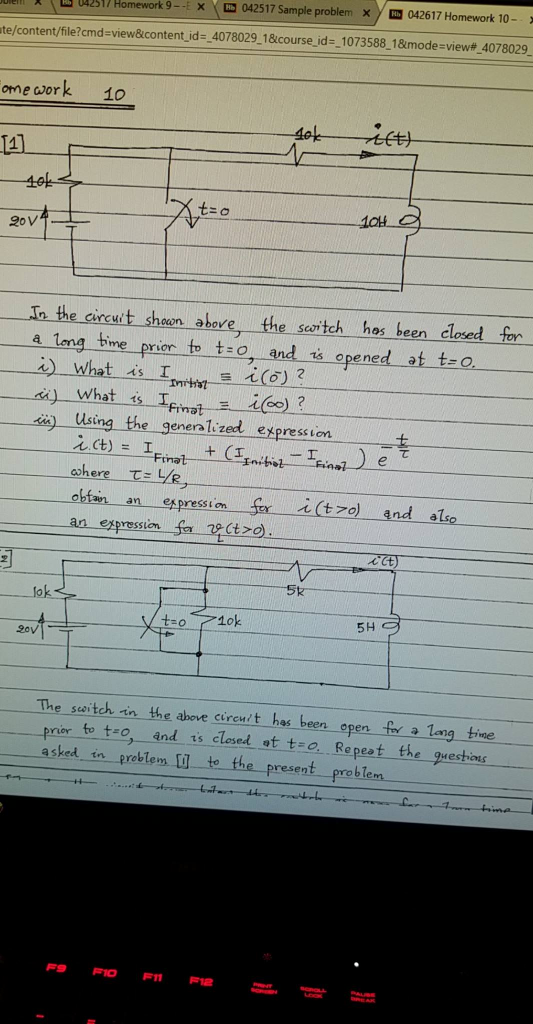 042517 Homework 9 - - E X
042517 Sample problem X
042617 Homework 10 -
te/content/file?cmd=view&content_id=_4078029_1&course_id=_1073588_1&mode=view#_4078029_
omework 10
[1]
10k
i(t)
10k
20V
t=0
10H
In the circuit shown above, the switch has been closed for
a long time prior to t=0, and is opened at t=0.
i) What is I Initial ≡ i(0⁻) ?
ii) What is I Final ≡ i(∞) ?
iii) Using the generalized expression
i(t) = I Final + (I Initial - I Final) e^-t/τ
where τ = L/R,
obtain an expression for i(t>0) and also
an expression for v_L(t>0).
2]
i(t)
5k
10k
20V
t=0
10k
5H
The switch in the above circuit has been open for a long time
prior to t=0, and is closed at t=0. Repeat the questions
asked in problem [1] to the present problem
F9 F10 F11 F12
PRINT SCREEN
SCROLL LOCK
PAUSE BREAK